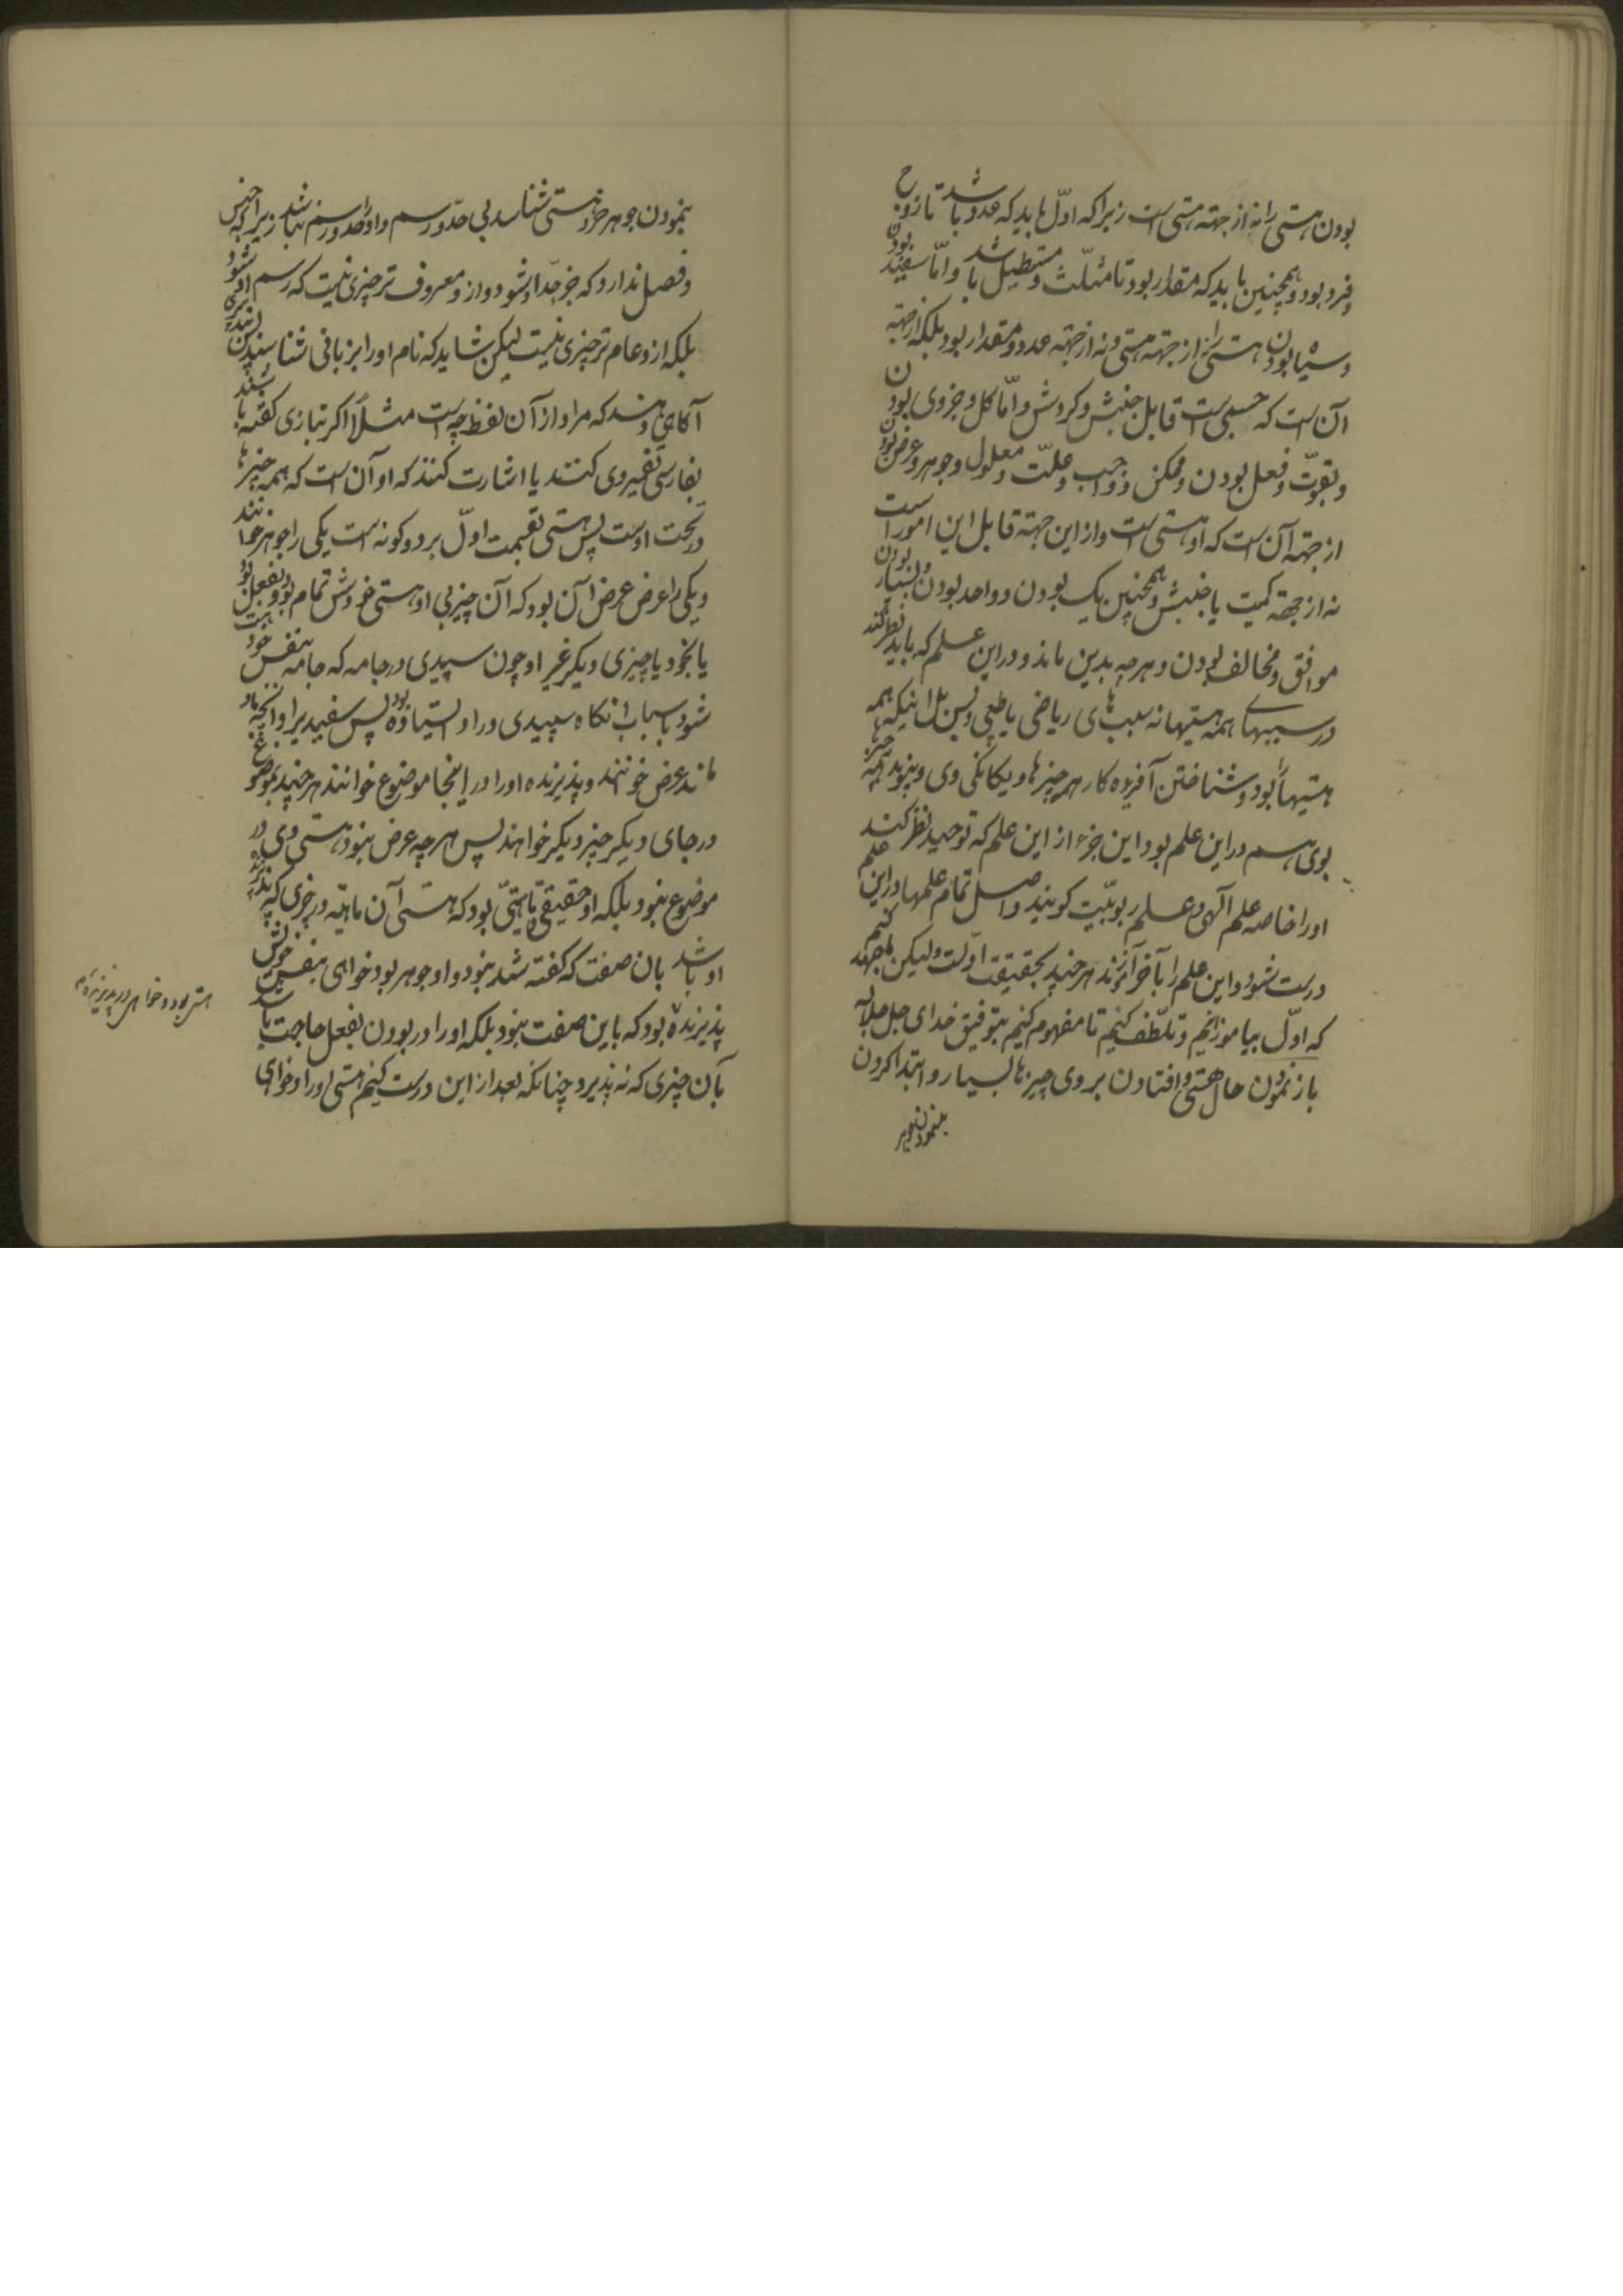 بودن هستی را نه از جهته هستی است زیرا که اوّل باید که عدد باشد تا زوج
و فرد بود و همچنین باید که مقدار بود تا مثلّث و مستطیل باشد و امّا سفید بودن
و سیاه بودن هستی را نه از جهته هستی و نه از جهته عدد و مقدار بود بلکه از جهته
آن است که جسمی است قابل جنبش و کردش و امّا کل و جزوی بودن
و بقوّت و فعل بودن و ممکن و واجب و علّت و معلول و جوهر و عرض بودن
از جهته آن است که او هستی است و از این جهته قابل این امور است
نه از جهة کمیت یا جنبش و همچنین یک بودن و واحد بودن و بسیار بودن
موافق و مخالف بودن و هرچه بدین ماند و در این علم که باید نظر کند
در سببهای همه هستیها نه سببهای ریاضی یا طبیعی و بس بل اینکه همه
هستیها را بود و شناختن آفریده کار همه چیزها و یکانکی وی و پیوند همه چیزها
بوی هم در این علم بود و این جزء از این علم که توحید نظر کند
او را خاصه علم آلهی و علم ربوبیّت کویند و اصل تمام علمها در این علم
درست شود و این علم را بآخر آموزند هرچند بحقیقت اوّلست و لیکن ما جهد کنیم
که اوّل بیاموزانیم و تلطّف کنیم تا مفهوم کنیم بتوفیق خدای جلّ جلاله
باز نمودن حال هستی و افتادن بر وی چیزها بسیار و ابتدا کردن
بنمودن جوهر
بنمودن جوهر خرد هستی شناسد بی حدّ و رسم و او را حد و رسم نباشد زیرا که جنس
و فصل ندارد که جز حدّ او شود و از و معروف تر چیزی نیست که رسم او شود
بلکه از و عام تر چیزی نیست لیکن شاید که نام او را بزبانی شناسند پس
آکاهی دهند که مراد از آن لفظ چه است مثلاً اکر بتازی کفته باشند
بفارسی تفسیر وی کنند یا اشارت کنند که او آن است که همه چیزها
در تحت اوست پس هستی بقسمت اوّل بر دو کونه است یکی را جوهر خوانند
و یکی را عرض عرض آن بود که آن چیز بی او هستی خودش تمام بود و بفعل بود
یا بخود یا چیزی دیکر غیر او چون سپیدی در جامه که جامه بنفس خود هست
شود باسباب انکاه سپیدی در او ایستاده بود پس سفیدی را و انچه باو
ماند عرض خوانند و پذیرنده او را در اینجا موضوع خوانند هرچند بموضوع
در جای دیکر چیز دیکر خواهند پس هرچه عرض نبود و هستی وی در
موضوع نبود بلکه او حقیقتی و ماهیّتی بود که هستی آن ماهیّه در چیزی که پذیرنده
او باشد بان صفت که کفته شد نبود و او جوهر بود خواهی بنفس خویش
پذیرنده بود که باین صفت نبود بلکه او را در بودن بفعل حاجت باشد
بآن چیزی که نه پذیرد چنانکه بعد از این درست کنیم هستی او را و خواهی
هستی بود و خواهی در پذیرنده